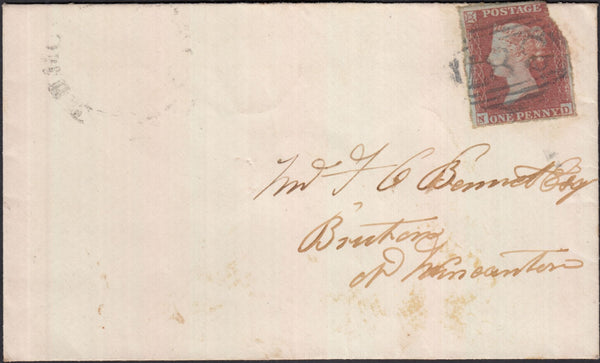 POSTAGE
ONE PENNY
N D
T O Bennet Esq
Bruton
Nr Wincanton